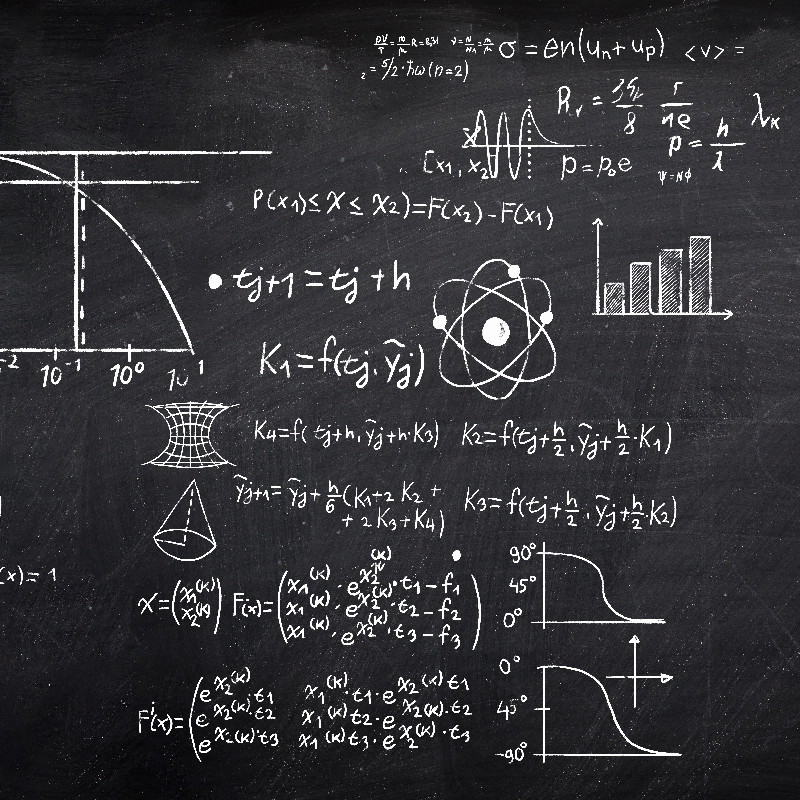 σ = en(un + up) <v> =
= 5/2·ħω(n=2)
8
r
ne
λk
p = h
[x1, x2
p = p₀e
ψ=Nϕ
P(x1) ≤ X ≤ x2) = F(x2) - F(x1)
tj+1 = tj + h
K1 = f(tj, ỹj)
10⁻¹ 10⁰
K4 = f( tj+h, ỹj+h·K3) K2 = f(tj + h/2, ỹj + h/2·K1)
ỹj+1 = ỹj + h/6 (K1 + 2 K2 +
+ 2 K3 + K4)
K3 = f(tj + h/2, ỹj + h/2·K2)
(x) = 1
90°
45°
0°
X = (x1(k) x2(k)) F(x) = (x1(k)·e^x2(k)·t1 - f1
x1(k)·e^x2(k)·t2 - f2
x1(k)·e^x2(k)·t3 - f3)
0°
45°
-90°
F'(x) = (e^x2(k)·t1 x1(k)·t1·e^x2(k)t1
e^x2(k)·t2 x1(k)t2·e^x2(k)·t2
e^x2(k)t3 x1(k)t3·e^x2(k)·t3